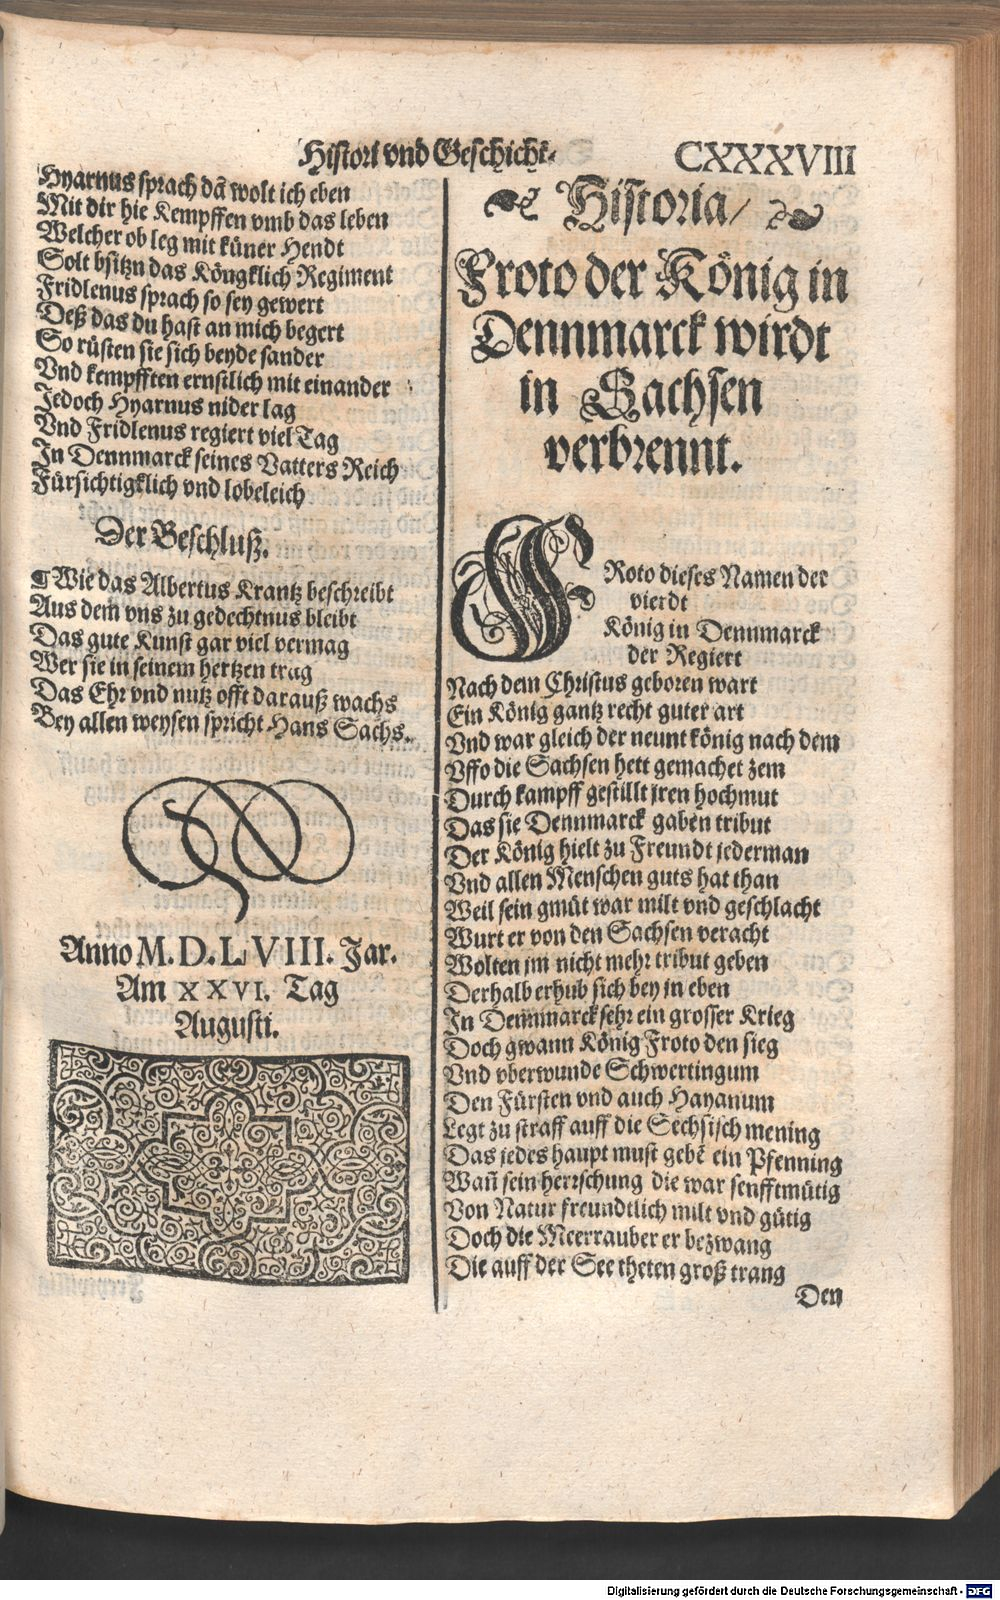 Histori vnd Geschicht. CXXXVIII
Hyarnus sprach dã wolt ich eben
Mit dir hie Kempffen vmb das leben
Welcher ob leg mit küner Hendt
Solt bsitzn das Köngklich Regiment
Fridlenus sprach so sey gewert
Deß das du hast an mich begert
So rüsten sie sich beyde sander
Vnd kempfften ernstlich mit einander
Jedoch Hyarnus nider lag
Vnd Fridlenus regiert viel Tag
In Dennmarck seines Vatters Reich
Fürsichtigklich vnd lobeleich
Der Beschluß.
¶ Wie das Albertus Krantz beschreibt
Aus dem vns zu gedechtnus bleibt
Das gute Kunst gar viel vermag
Wer sie in seinem hertzen trag
Das Ehr vnd nutz offt darauß wachs
Bey allen weysen spricht Hans Sachs.
Anno M. D. L VIII. Jar.
Am XXVI. Tag
Augusti.
Historia/
Froto der König in
Dennmarck wirdt
in Sachsen
verbrennt.
FRoto dieses Namen der
vierdt
König in Dennmarck
der Regiert
Nach dem Christus geboren wart
Ein König gantz recht guter art
Vnd war gleich der neunt könig nach dem
Vffo die Sachsen hett gemachet zem
Durch kampff gestillt jren hochmut
Das sie Dennmarck gaben tribut
Der König hielt zu Freundt jederman
Vnd allen Menschen guts hat than
Weil sein gmüt war milt vnd geschlacht
Wurt er von den Sachsen veracht
Wolten jm nicht mehr tribut geben
Derhalb erhub sich bey jn eben
In Dennmarck sehr ein grosser Krieg
Doch gwann König Froto den sieg
Vnd vberwunde Schwertingum
Den Fürsten vnd auch Hayanum
Legt zu straff auff die Sechsisch mening
Das jedes haupt must gebẽ ein Pfenning
Wañ sein herrschung die war senfftmütig
Von Natur freundtlich milt vnd gütig
Doch die Meerrauber er bezwang
Die auff der See theten groß trang
Den
Digitalisierung gefördert durch die Deutsche Forschungsgemeinschaft - DFG